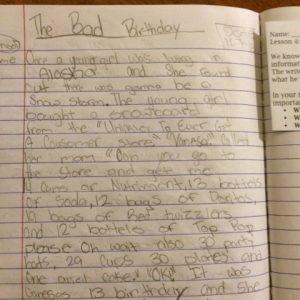 The Bad Birthday
Once a young girl was living in
Alaska and she found
out there was gonna be a
snow storm. The young girl
bought a snowboard
from the "
A store"
her mom "Can you go to
the store and get me
4 cans of Nutriment, 13 bottels
of Soda, 12 bags of Doritos,
10 bags of Red twizzlers
and 12 bottels of Top Pop
please Oh wait also 30 party
hats, 29 cups 30 plates and
one cake." "OK!" It was
13 birthday and she
Name:
Lesson 4:
We know
informat
The write
what he
In your s
importa
• W
• W
• W